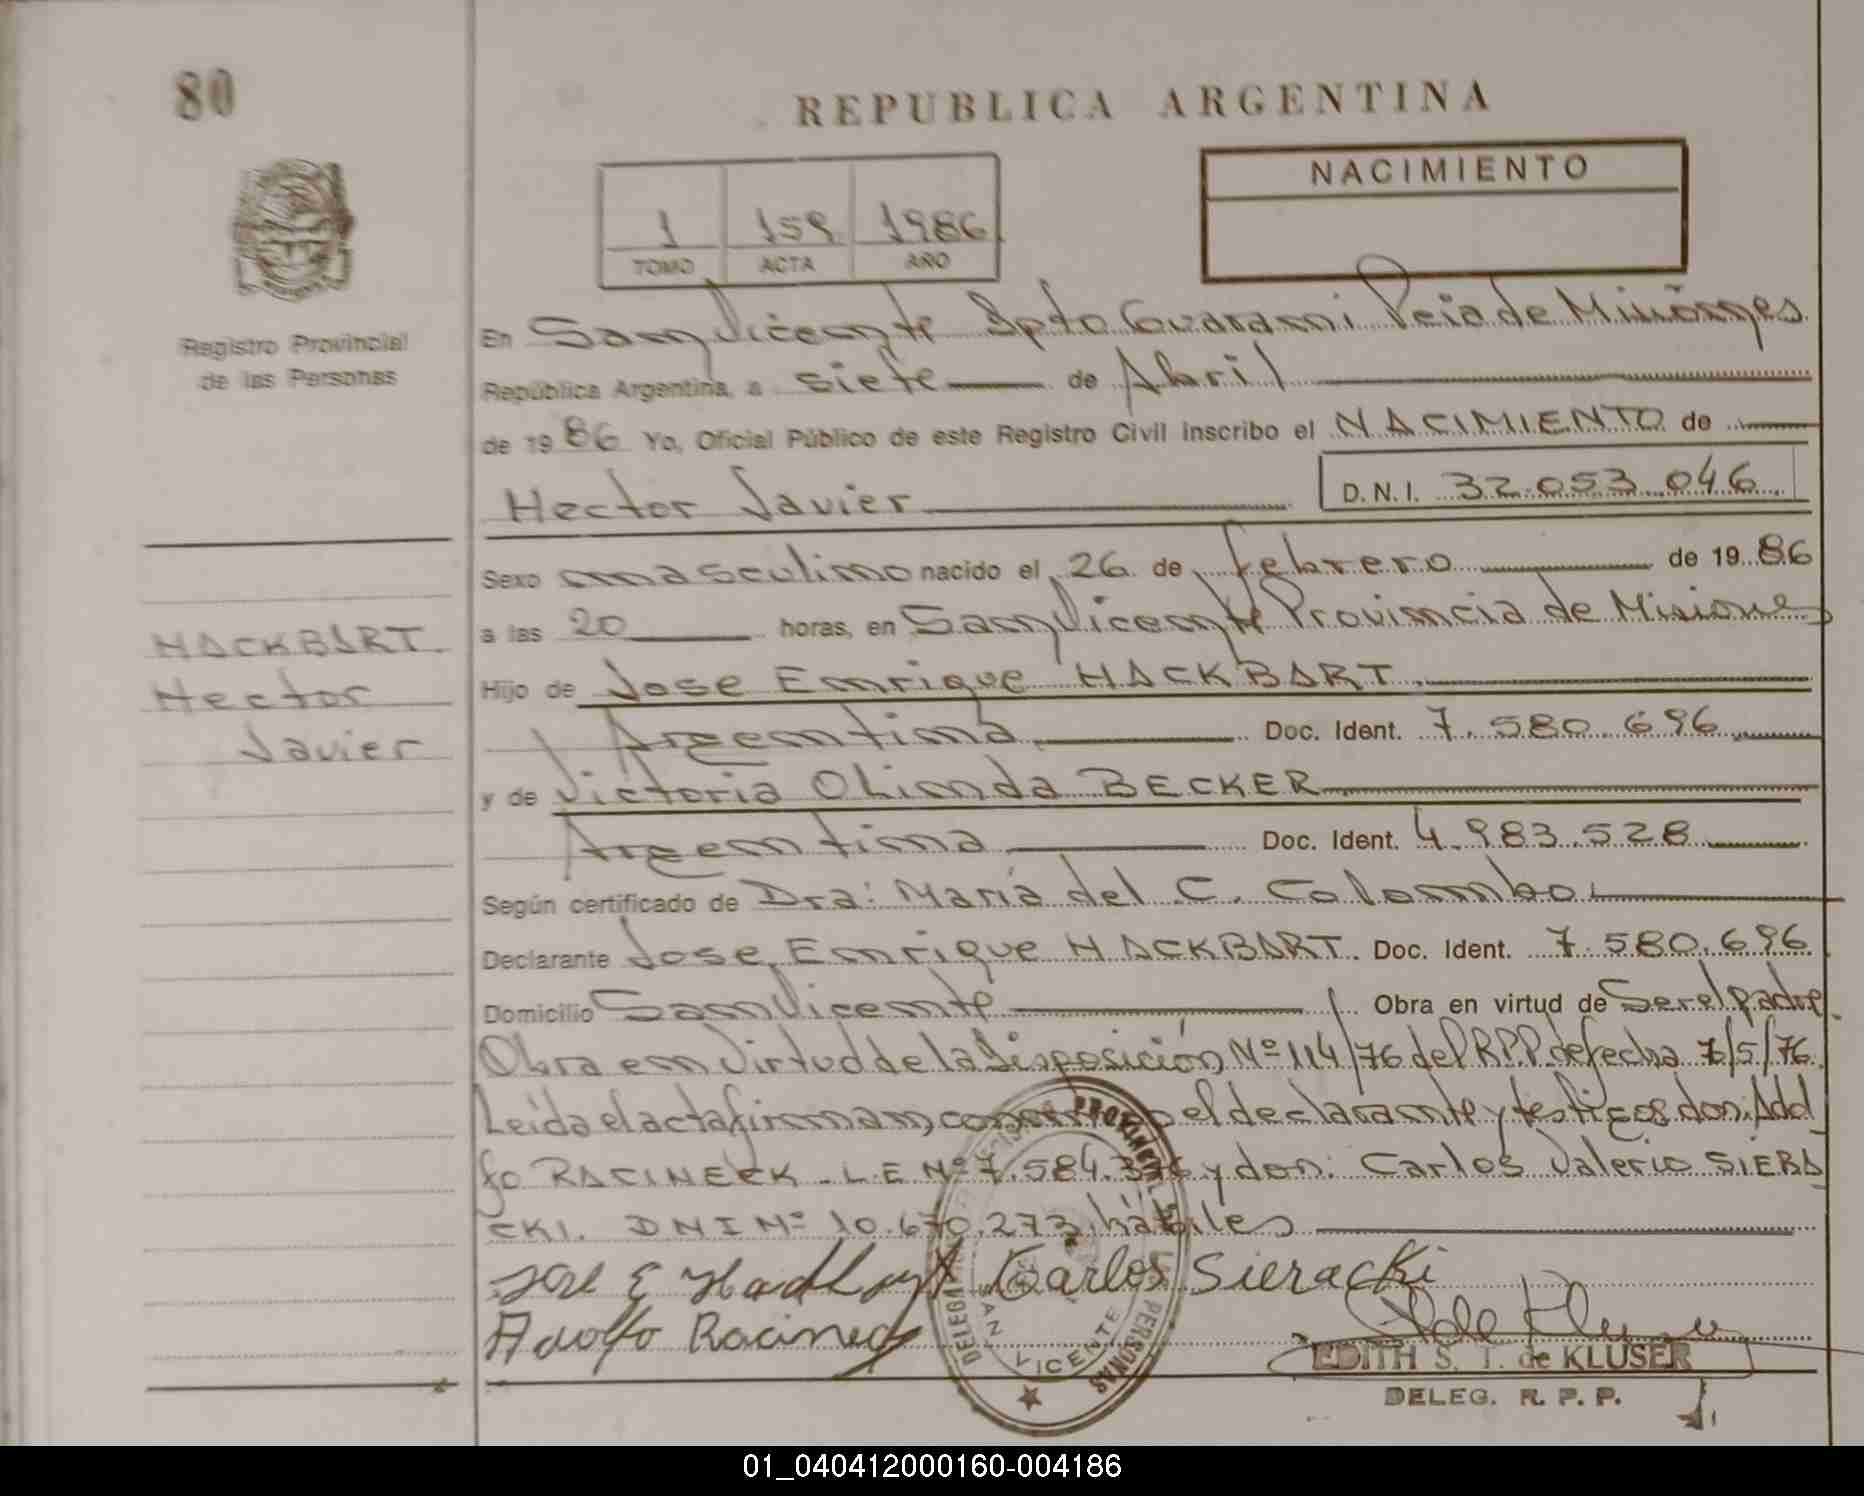 80
REPUBLICA ARGENTINA
NACIMIENTO
1 159 1986
TOMO ACTA AÑO
Registro Provincial
de las Personas
En San Vicente Dpto Guarani Pcia de Misiones
República Argentina, a siete de Abril
de 1986 Yo, Oficial Público de este Registro Civil inscribo el NACIMIENTO de
Hector Javier D.N.I. 32.053.046
Sexo masculino nacido el 26 de febrero de 1986
a las 20 horas, en San Vicente Provincia de Misiones
HACKBART
Hector
Javier
Hijo de Jose Enrique HACKBART
Argentina Doc. Ident. 7.580.696
y de Victoria Olinda BECKER
Argentina Doc. Ident. 4.983.528
Según certificado de Dra: María del C. Colombo
Declarante Jose Enrique HACKBART. Doc. Ident. 7.580.696
Domicilio San Vicente Obra en virtud de Ser el padre
Obra en virtud de la Disposición Nº 114/76 del R.P.P. de fecha 7/5/76.
Leída el acta firman el declarante y testigos don: Adol
fo RACINECK - L.E Nº 7.584. y don: Carlos Valerio SIERA
CKI. DNI Nº 10.670.273 hábiles
Jose E Hackbart Carlos Sieracki
Adolfo Racineck
DELEGA PROVINCIAL PERSONAS
SAN VICENTE
EDITH S. T. de KLUSER
DELEG. R. P. P.
01_040412000160-004186